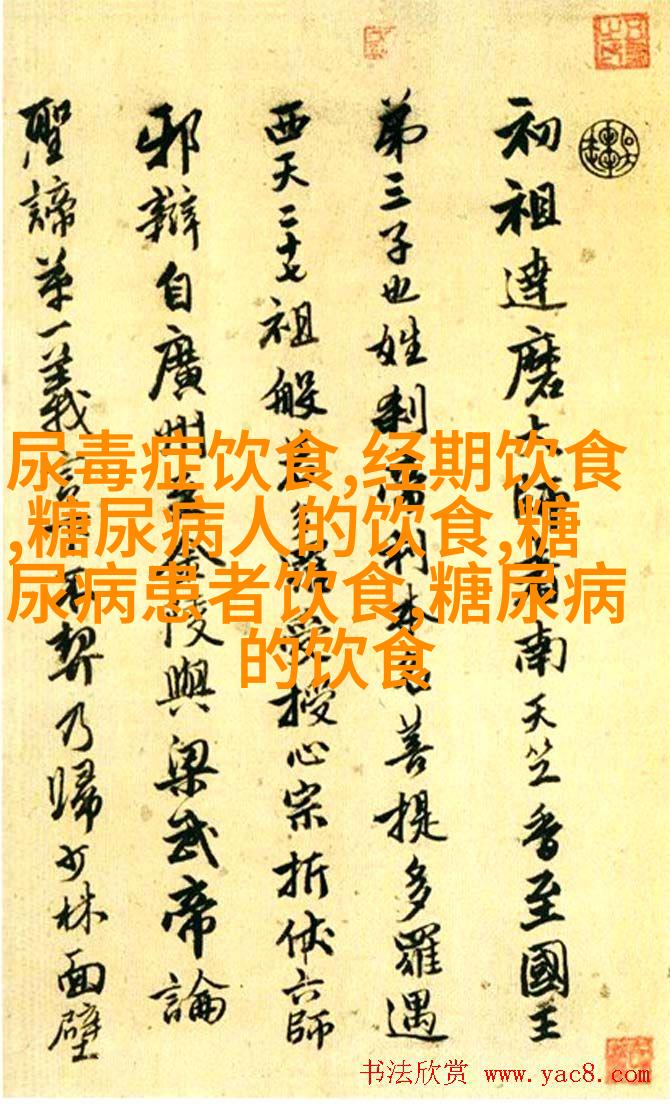 初祖達磨大師者南天竺香至國王
第三子也姓刹帝利本名菩提多羅遇
西天二十七祖般若多羅授心宗折伏六師
邪辯自廣州至金陵與梁武帝論
聖諦第一義不契乃歸少林面壁
尿毒症饮食,经期饮食
,糖尿病人的饮食,糖
尿病患者饮食,糖尿病
的饮食
书法欣赏 www.yac8.com